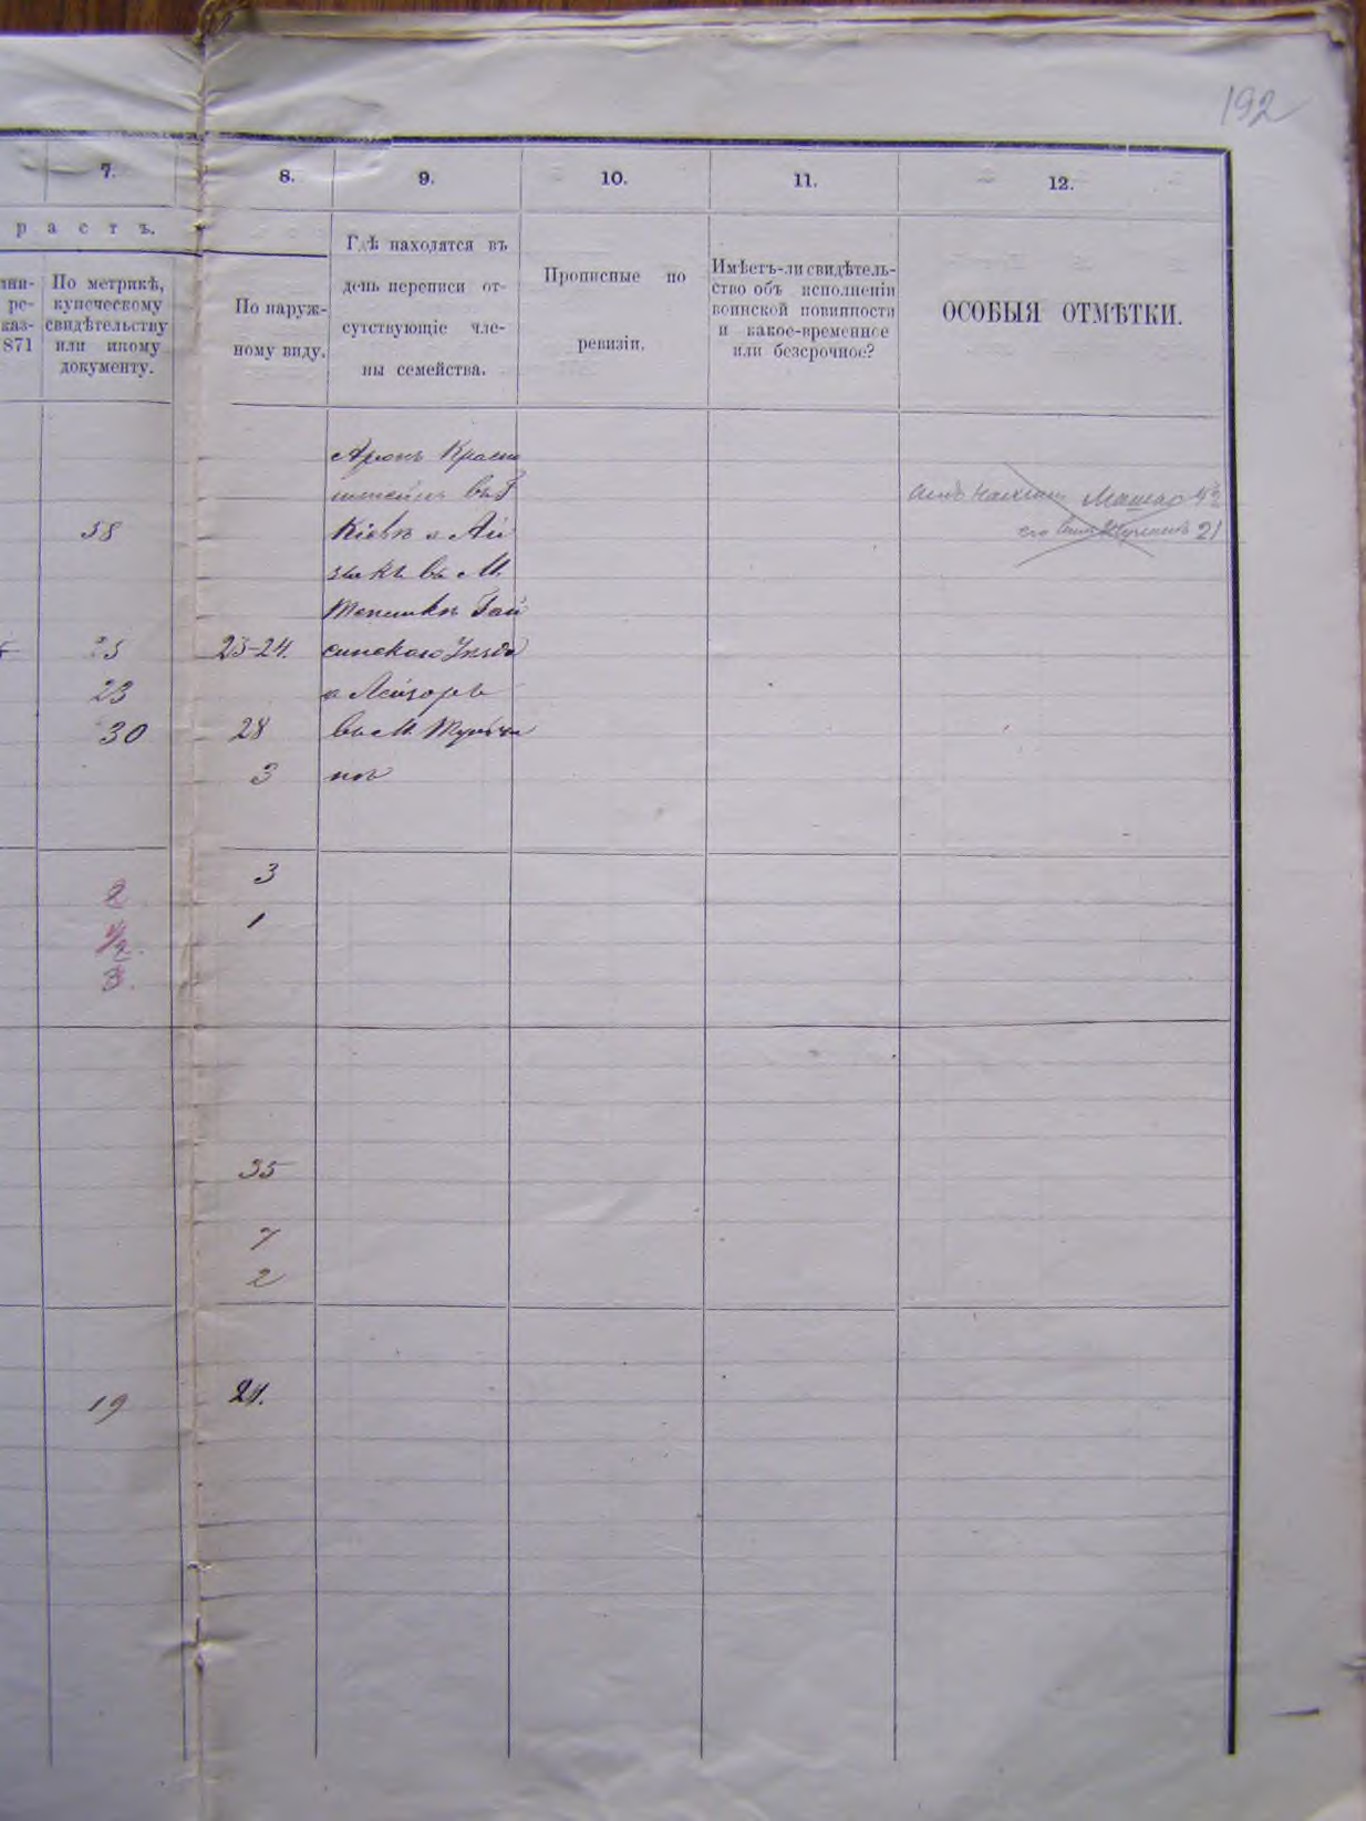 192
7. 8. 9. 10. 11. 12.
р а с т ъ.
По метрикѣ,
купеческому
свидѣтельству
или иному
документу.
ре-
каз-
871
По наруж-
ному виду.
Гдѣ находятся въ
день переписи от-
сутствующіе чле-
ны семейства.
Прописные по
ревизіи.
Имѣетъ-ли свидѣтель-
ство объ исполненіи
воинской повинности
и какое-временное
или безсрочное?
ОСОБЫЯ ОТМѢТКИ.
Аронъ Красн
штейнъ въ Г
58 Кіевѣ а Ай
зикъ въ М.
Тепликѣ Гай
23-24. синскаго Уѣзда
23 а Лейзоръ
30 28 въ М.
3
его 21
3
2 1
3.
35
7
2
19 24.